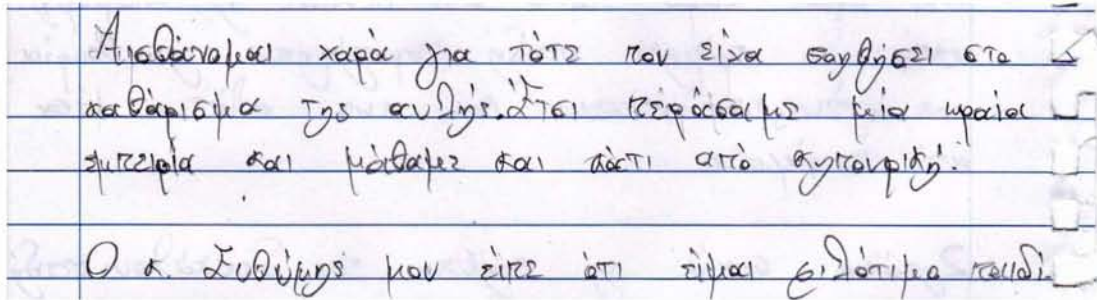 Αισθάνομαι χαρά για τότε που είχα βοηθήσει στο
καθάρισμα της αυλής. Έτσι περάσαμε μία ωραία
εμπειρία και μάθαμε και κάτι από κηπουρική.
Ο κ. Ευθύμης μου είπε ότι είμαι φιλότιμο παιδί.